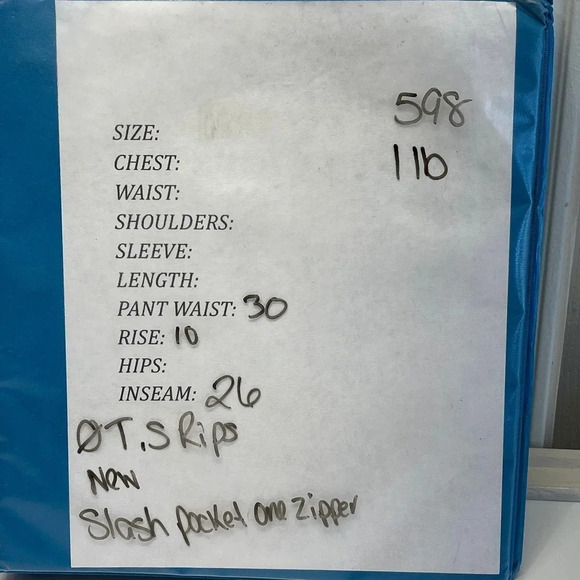 598
1 lb
SIZE:
CHEST:
WAIST:
SHOULDERS:
SLEEVE:
LENGTH:
PANT WAIST: 30
RISE: 10
HIPS:
INSEAM: 26
ØT, S Rips
New
Slash pocket one zipper